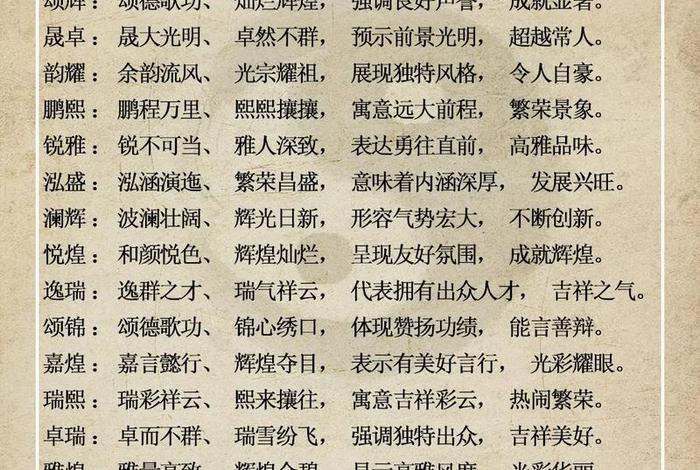 颂辉：颂德歌功、灿烂辉煌，强调良好声誉，成就显著。
晟卓：晟大光明、卓然不群，预示前景光明，超越常人。
韵耀：余韵流风、光宗耀祖，展现独特风格，令人自豪。
鹏熙：鹏程万里、熙熙攘攘，寓意远大前程，繁荣景象。
锐雅：锐不可当、雅人深致，表达勇往直前，高雅品味。
泓盛：泓涵演迤、繁荣昌盛，意味着内涵深厚，发展兴旺。
澜辉：波澜壮阔、辉光日新，形容气势宏大，不断创新。
悦煌：和颜悦色、辉煌灿烂，呈现友好氛围，成就辉煌。
逸瑞：逸群之才、瑞气祥云，代表拥有出众人才，吉祥之气。
颂锦：颂德歌功、锦心绣口，体现赞扬功绩，能言善辩。
嘉煌：嘉言懿行、辉煌夺目，表示有美好言行，光彩耀眼。
瑞熙：瑞彩祥云、熙来攘往，寓意吉祥彩云，热闹繁荣。
卓瑞：卓而不群、瑞雪纷飞，强调独特出众，吉祥美好。
雅煌：雅量高致、辉煌金碧，显示高雅风度，光彩华丽。